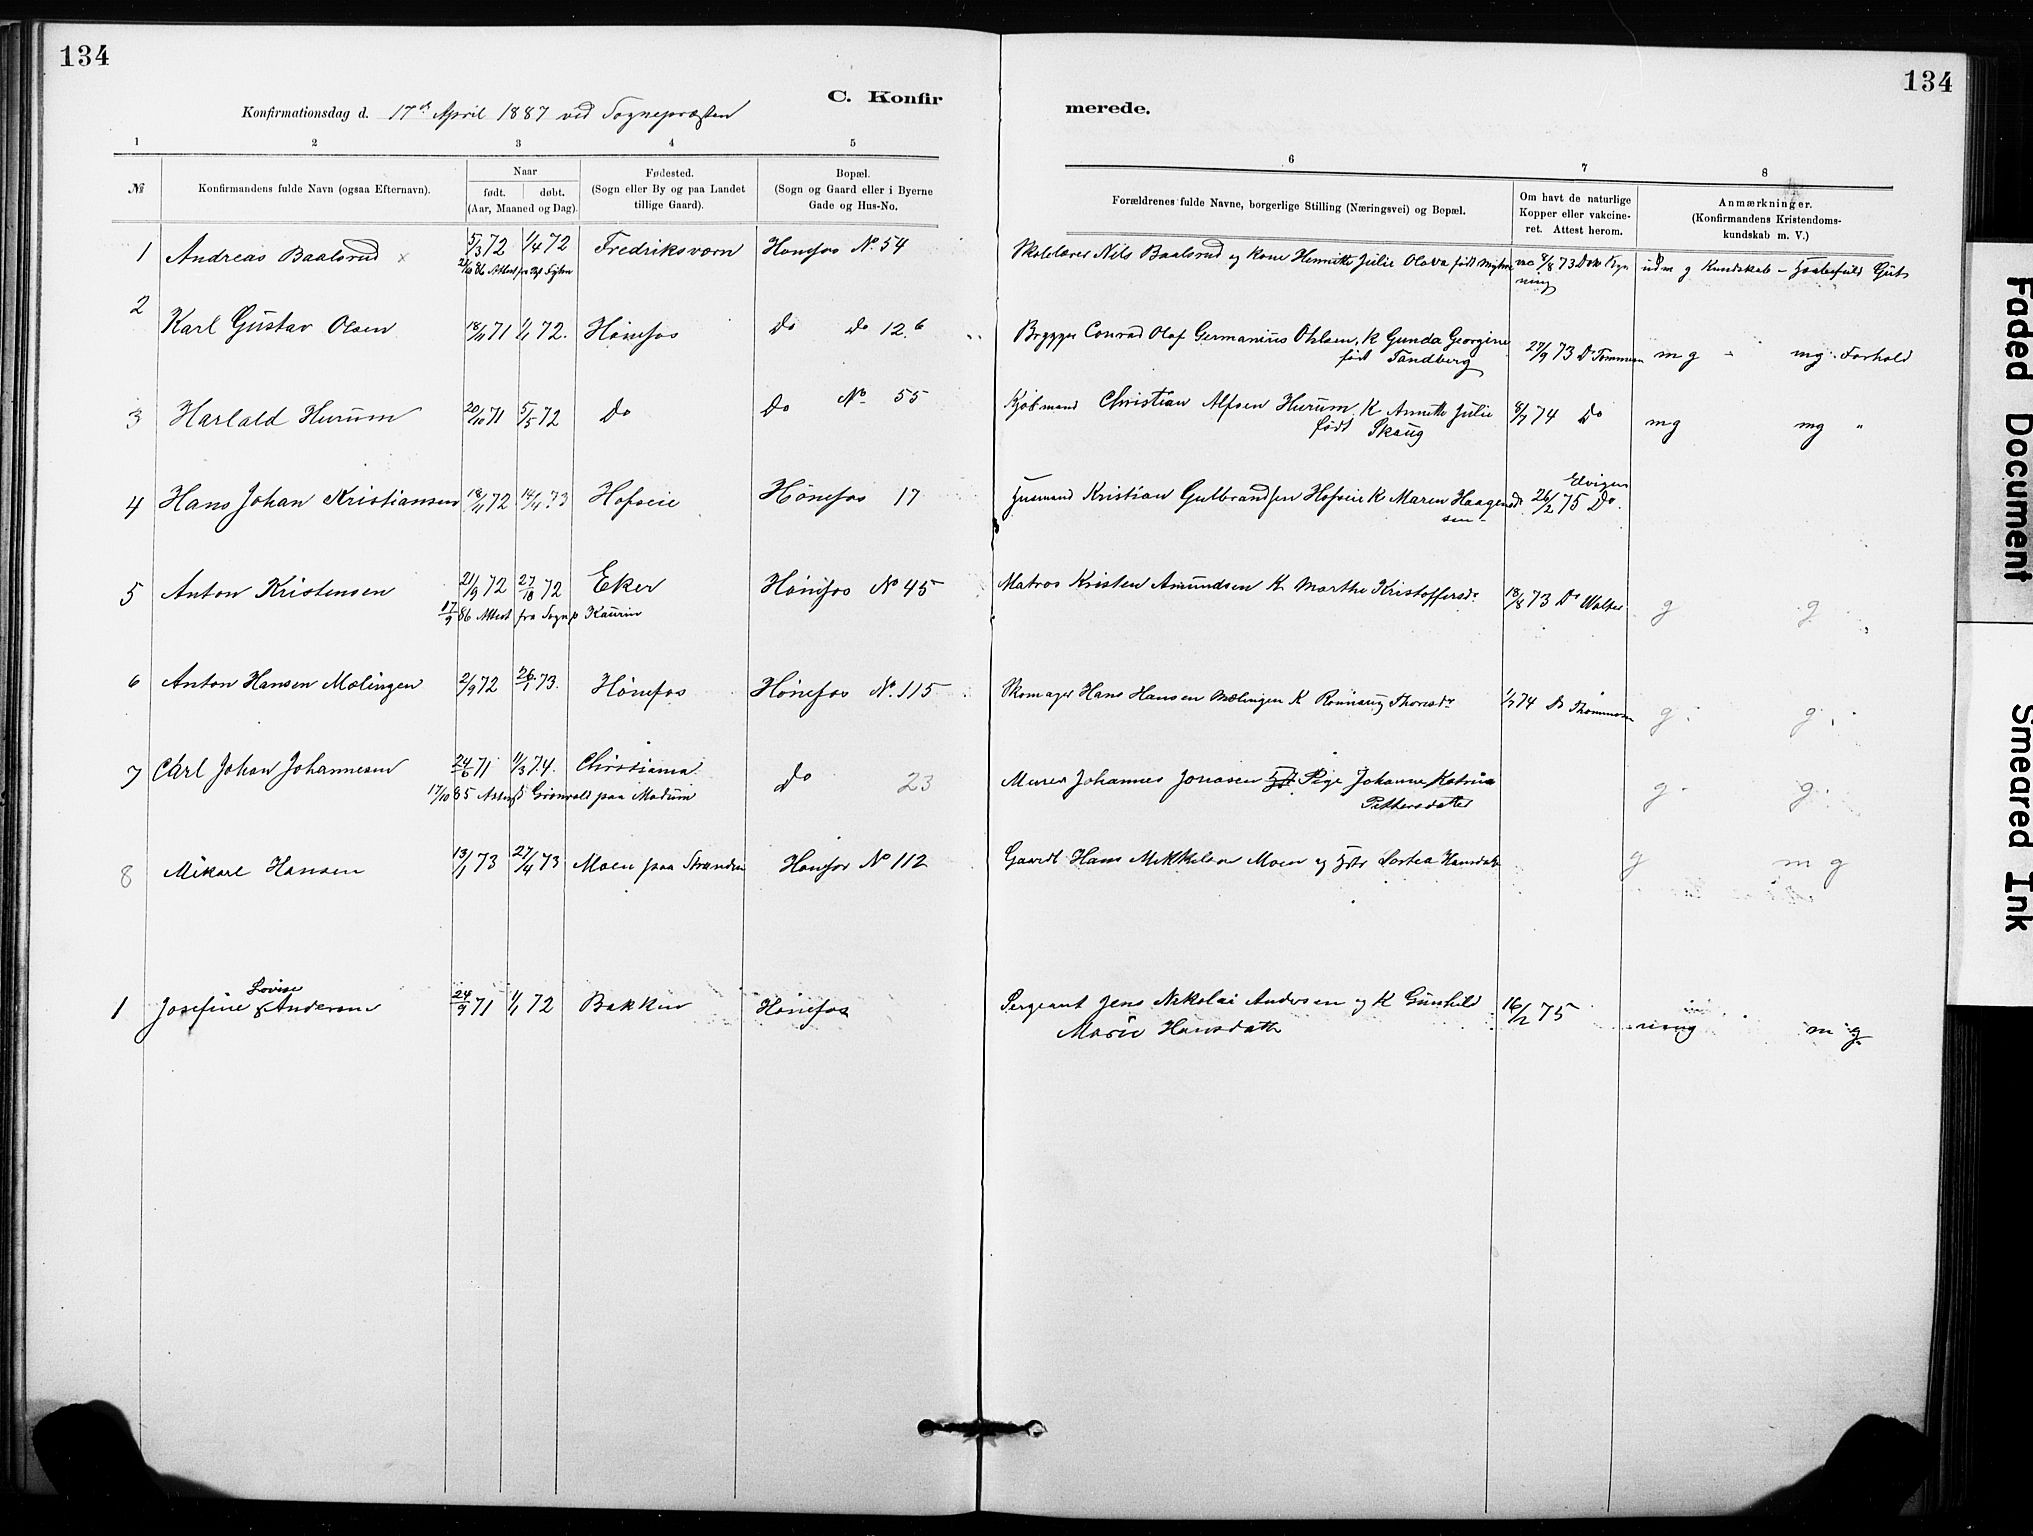 134
134
C. Konfir
merede.
Konfirmationsdag d. 17de April 1887 ved Sognepræsten
1 2 3 4 5 6 7 8
№ Konfirmandens fulde Navn (ogsaa Efternavn). Naar født. døbt. (Aar, Maaned og Dag). Fødested. (Sogn eller By og paa Landet tillige Gaard). Bopæl. (Sogn og Gaard eller i Byerne Gade og Hus-No. Forældrenes fulde Navne, borgerlige Stilling (Næringsvei) og Bopæl. Om havt de naturlige Kopper eller vakcineret. Attest herom. Anmærkninger. (Konfirmandens Kristendomskundskab m. V.)
1 Andreas Baalsrud x 5/3 72 1/4 72 Fredriksværn Hønefos No. 54 Skolelærer Nils Baalsrud og Kone Henriette Julie Olava født vac 8/8 73 udm g Kundskab – Haabefuld Gut
86 Attest fra
2 Karl Gustav Olsen 18/11 71 1/1 72. Hønefos Do Do 126 Brygger Conrad Olaf Germanius Ohlsen, K Gunda Georgine 27/9 73 Dr Tommesen mg mg Forhold
født Tandberg
3 Harlald Hurum 20/10 71 5/5 72 Do Do No 55 Kjøbmand Christian Alfsen Hurum K Annette Julie 8/7 74 Do mg mg "
født Skaug
4 Hans Johan Kristiansen 18/11 72 14/4 73 Hofseie Hønefos 17 Husmand Kristian Gulbrandsen Hofseie K Maren Haagensd 26/2 75 Do.
5 Anton Kristensen 21/9 72 27/10 72 Eker Hønefos No 45 Matros Kristen Amundsen K Marthe Kristoffersdr 18/8 73 Dr Walter g g
17/9 86 Attest fra Sognp Kaurin
6 Anton Hansen Mælingen 2/9 72 26/1 73. Hønefos Hønefos No. 115 Skomager Hans Hansen Mælingen K Rønnaug Thoresdr 1/7 74 Dr Thommesen g g
7 Carl Johan Johannesen 24/6 71 1/3 74. Christiania Do 23 Murer Johannes Jonasen Pige Johanne Katrine g g
17/10 85 Attest Grønvold paa Modum
Pettersdatter
8 Mikael Hansen 13/1 73 27/4 73 Moen paa Stranden Hønefos No 112 Gaardbr Hans Mikkelsen Moen og Hstr Dortea Hansdatter g m g
Lovise
1 Josefine Andersen 24/9 71 1/1 72 Bakken Hønefos Sergeant Jens Nikolai Andersen og K Gunhild 16/2 75 m g
Marie Hansdatter
Faded Document
Smeared Ink